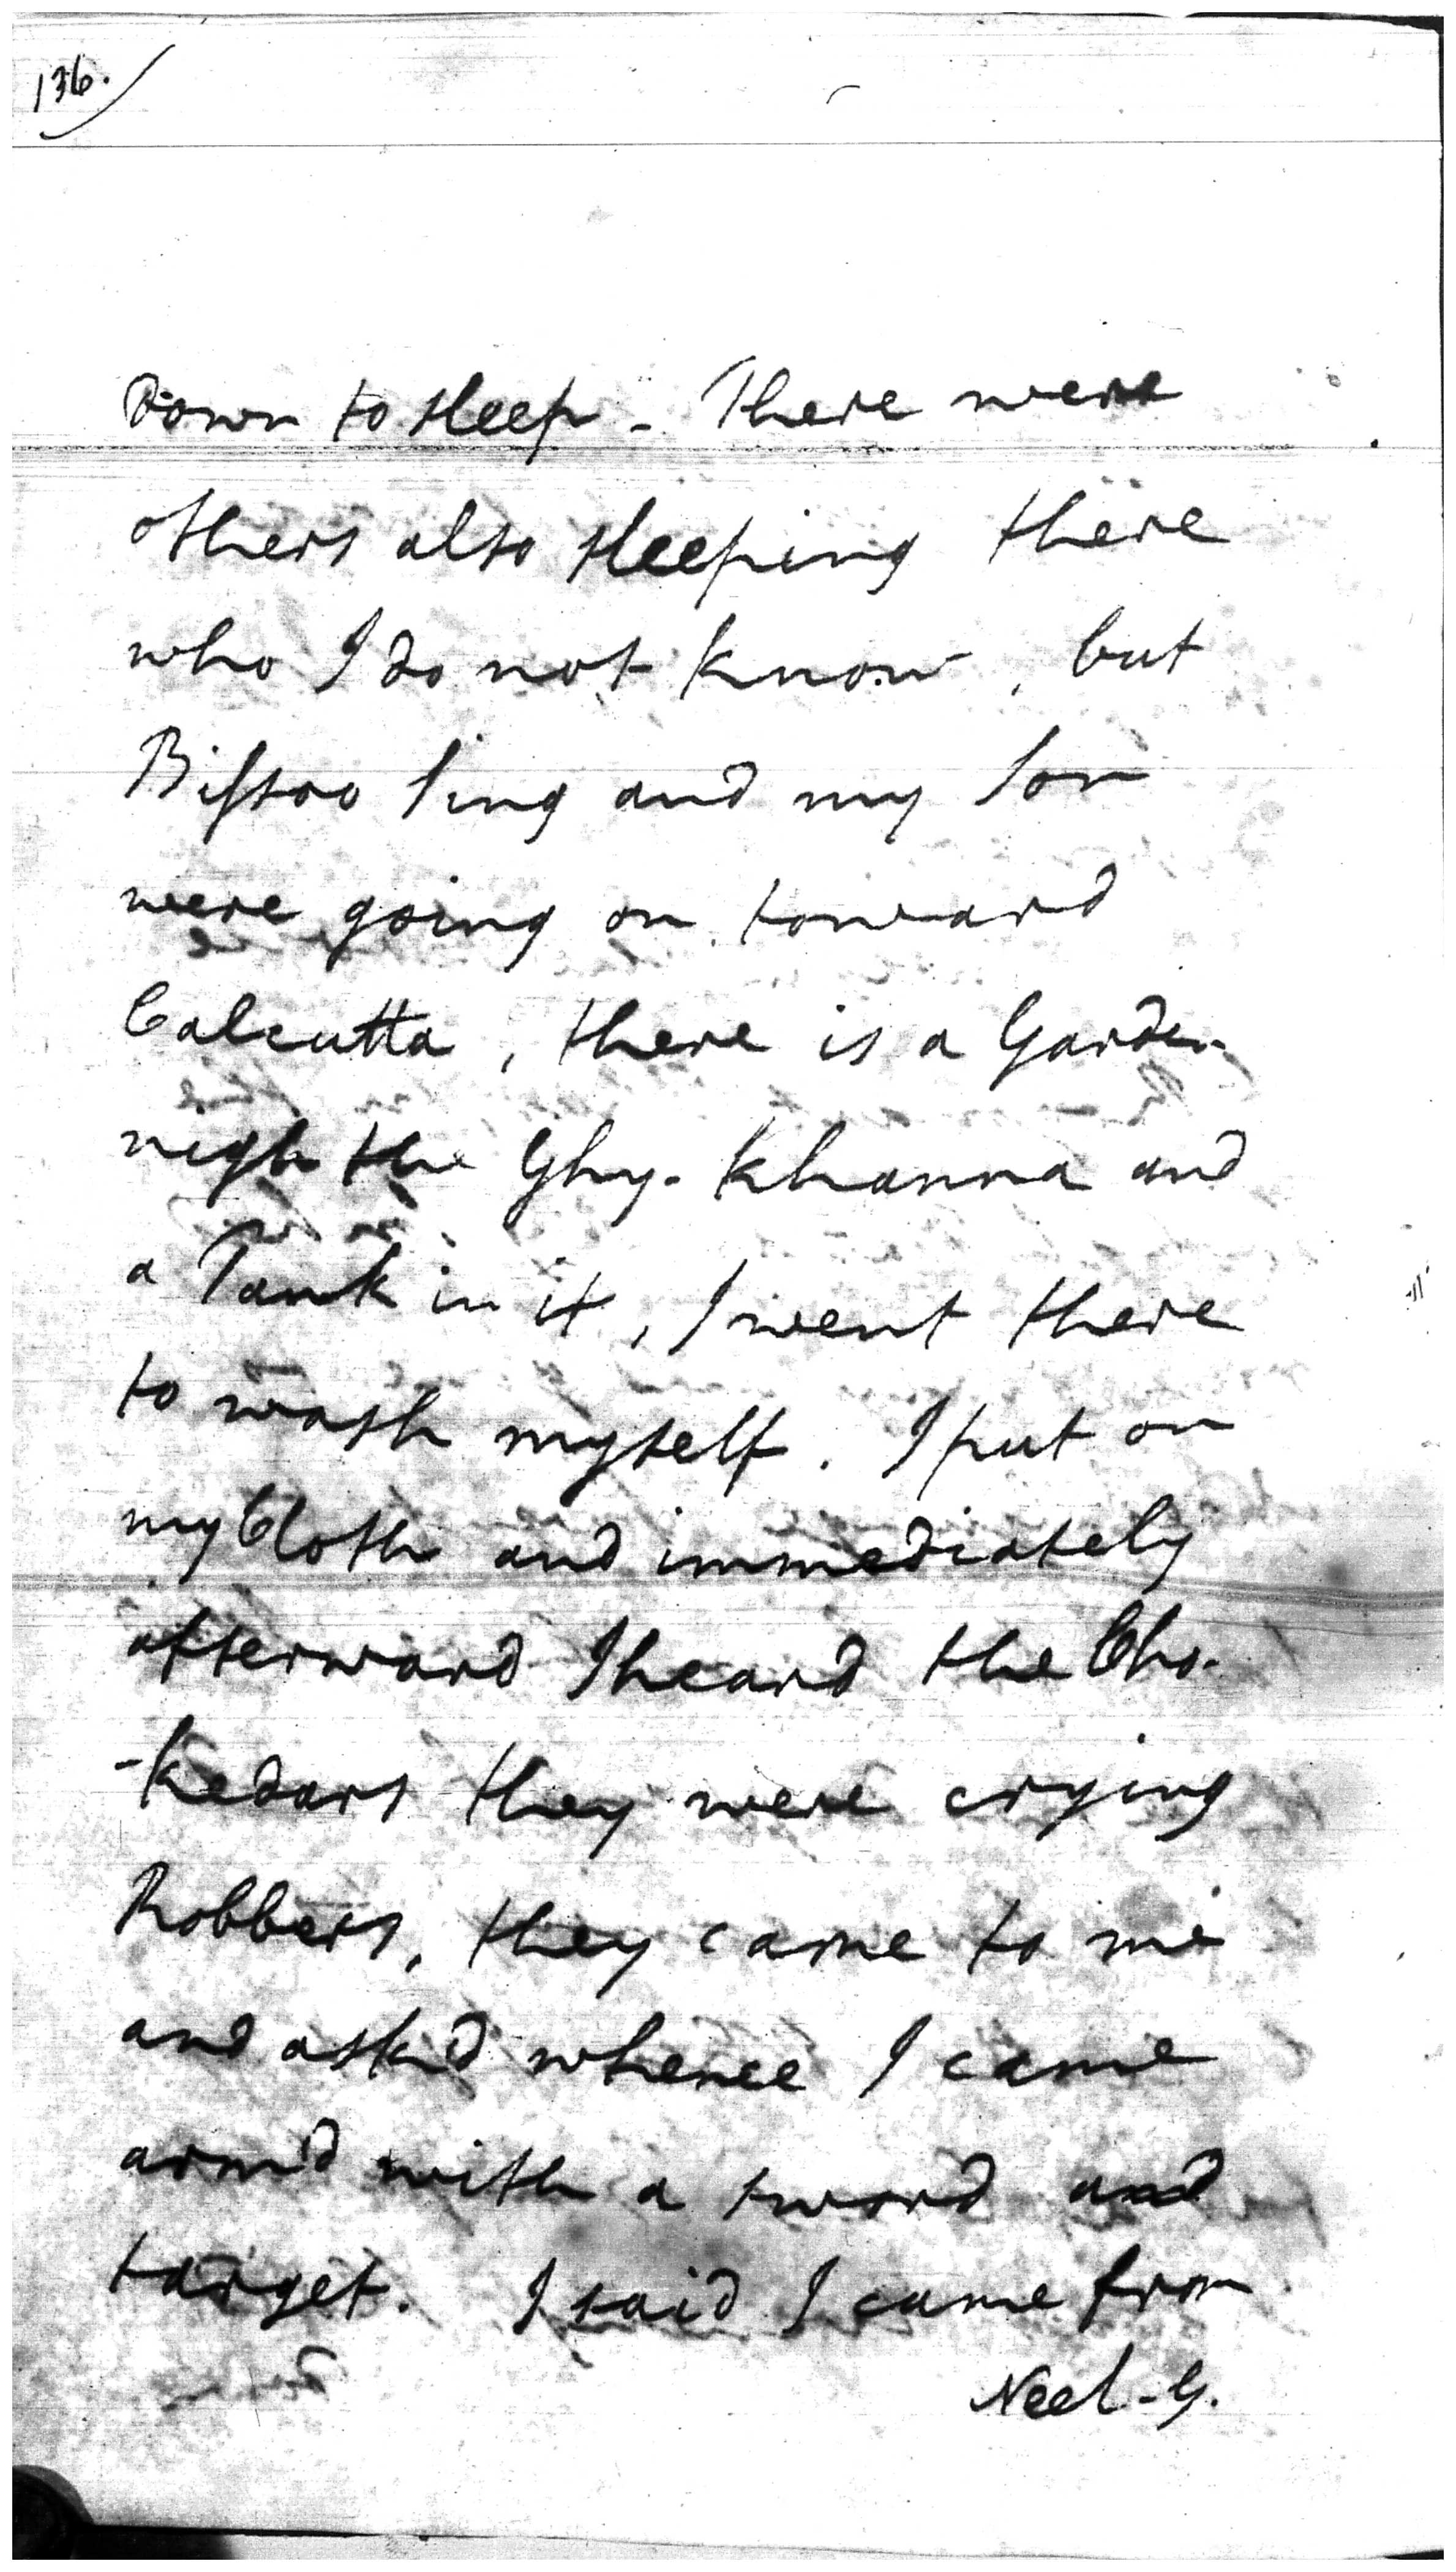 136.
Down to sleep - There were
others also sleeping there
who I do not know, but
Bissoo Sing and my Son
were going on toward
Calcutta, there is a Garden
nigh the Ghy-Khanna and
a Tank in it, I went there
to wash myself. I put on
my Cloth and immediately
afterward I heard the Cho-
-kedars they were crying
Robbers, they came to me
and ask'd whence I came
arm'd with a sword and
target. I said I came from
Neel-G.